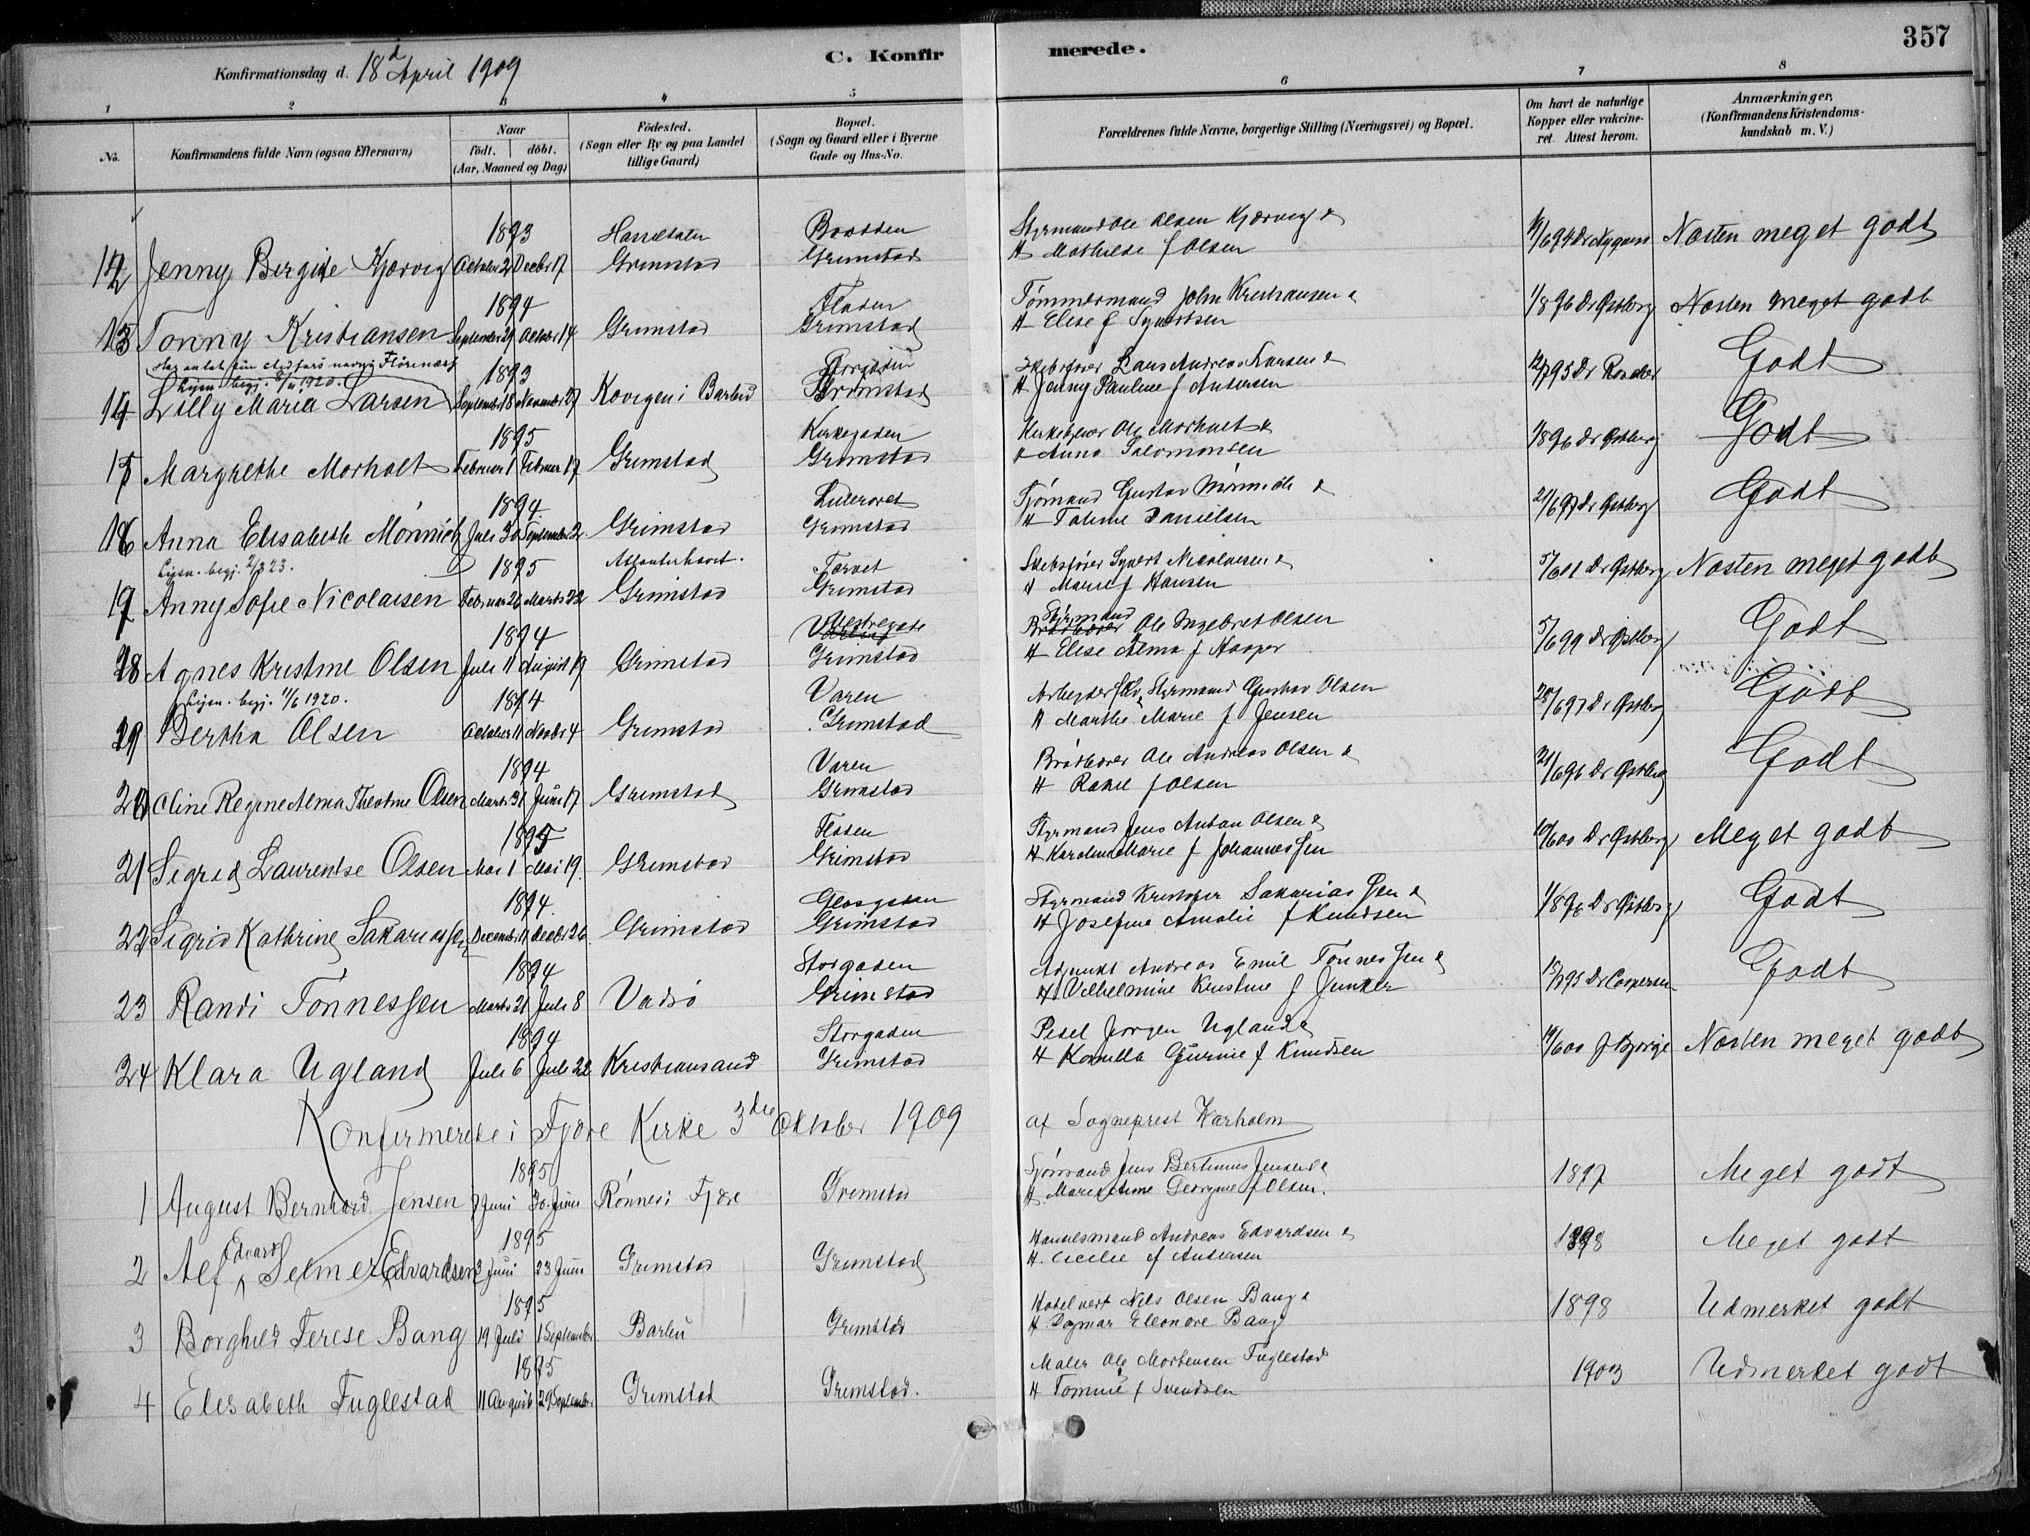 357
Konfirmationsdag d. 18d April 1909
C. Konfirmerede.
1 2 3 4 5 6 7 8
No. Konfirmandens fulde Navn (ogsaa Efternavn) Naar født. døbt. (Aar, Maaned og Dag) Fødested. (Sogn eller By og paa Landet tillige Gaard) Bopæl. (Sogn og Gaard eller i Byerne Gade og Hus-No. Forældrenes fulde Navne, borgerlige Stilling (Næringsvei) og Bopæl. Om havt de naturlige Kopper eller vakcineret. Attest herom. Anmærkninger. (Konfirmandens Kristendomskundskab m. V.)
1893 Styrmand Ole Olsen Kjørvig &
12 Jenny Bergite Kjørvig October 2 Decbr 17 Grimstad Grimstad H Mathilde f Olsen Næsten meget godt
1894 Floden Tømmermand John Kristiansen &
13 Tonny Kristiansen September 29 October 14 Grimstad Grimstad H Elise f Syvertsen 1/8 96 Dr Østberg Næsten meget godt
1893 Storgaden Skibsfører Lars Andreas Larsen &
Lysn. begj. 1920.
14 Lilly Maria Larsen September 18 November 27 Kovigen i Barbu Grimstad H Jenny Pauline f Andersen Godt
1895 Kirkegaden Kirketjener Ole Morholt &
15 Margrethe Morholt Februar 1 Februar 17 Grimstad Grimstad Anna Salomonsen 1/8 96 Dr Østberg Godt
1894 Sjømand Gustav Mønnich &
16 Anna Elisabeth Mønnich Juli 30 September 2 Grimstad Grimstad H Taline Danielsen 21/6 97 Dr Østberg Godt
Lysn. begj. 2/3 23. 1895 Atlanterhavet. Torvet Skibsfører Syvert Nicolaisen &
17 Anny Sofie Nicolaisen Februar 26 Marts 22 Grimstad Grimstad H Marie f Hansen 5/6 01 Dr Østberg Næsten meget godt
1894 Vestregate Styrmand Ole Ingebret Olsen
18 Agnes Kristine Olsen Juli 11 August 19 Grimstad Grimstad H Elise Alma f Kasper 5/6 99 Dr Østberg Godt
Lysn. begj. 11/6 1920. 1894 Varen Styrmand Gustav Olsen
19 Bertha Olsen October 11 Novbr 4 Grimstad Grimstad H Marthe Marie f Jensen Dr Østberg Godt
1894 Varen Brødbærer Ole Andreas Olsen &
20 Oline Regine Alma Theoline Olsen Marts 31 Juni 17 Grimstad Grimstad H Rakel f Olsen 21/6 96 Dr Østberg Godt
1895 Floden Styrmand Jens Anton Olsen &
21 Sigrid Laurentse Olsen Mai 1 Mai 19. Grimstad Grimstad H Karoline Marie f Johannessen Dr Østberg Meget godt
1894. Styrmand Kristofer Sakariassen &
22 Sigrid Kathrine Sakariassen December 11 Decbr 26. Grimstad Grimstad H Josefine Amalie f Knudsen 1/8 96 Dr Østberg Godt
1894 Storgaden Adjunkt Andreas Emil Tønnessen &
23 Randi Tønnessen Marts 21 Juli 8 Vadsø Grimstad H Vilhelmine Kristine f Junker Godt
1894 Storgaden Jørgen Ugland &
24 Klara Ugland Juli 6 Juli 22 Kristiansand Grimstad H Kamilla Gurine f Knudsen Næsten meget godt
Konfirmerede i Fjære Kirke 3die Oktober 1909 af Sogneprest Karholm
1895 Sjømand Jens Bertinius Jensen &
1 August Bernhard Jensen 7 Juni 30. Juni Rønnes i Fjære Grimstad H Georgine f Olsen. 1897 Meget godt
1895 Handelsmand Andreas Edvardsen &
2 Alf Edvard Selmer Edvardsen 3 Juni 23 Juni Grimstad Grimstad H. Cecilie f Andersen 1898 Meget godt
1895 Hotelvert Nils Olsen Bang &
3 Borghild Terese Bang 19 Juli 1 September Barbu Grimstad H Dagmar Eleonore Bang 1898 Udmerket godt
1895 Maler Ole Mortensen Fuglestad
4 Elisabeth Fuglestad 11 August 29 September Grimstad Grimstad. H Tomine f Svendsen 1903 Udmerket godt